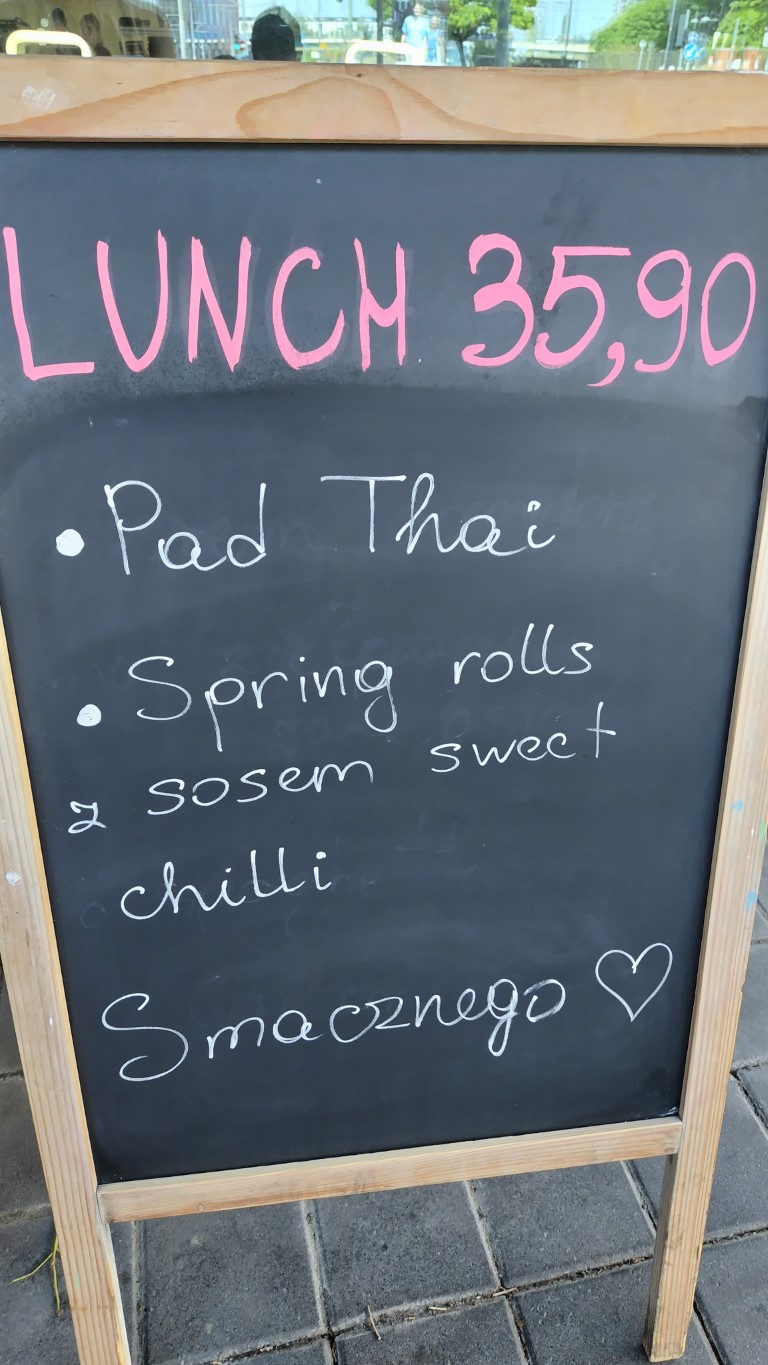 LUNCH 35,90
• Pad Thai
• Spring rolls
z sosem sweet
chilli
Smacznego ♡